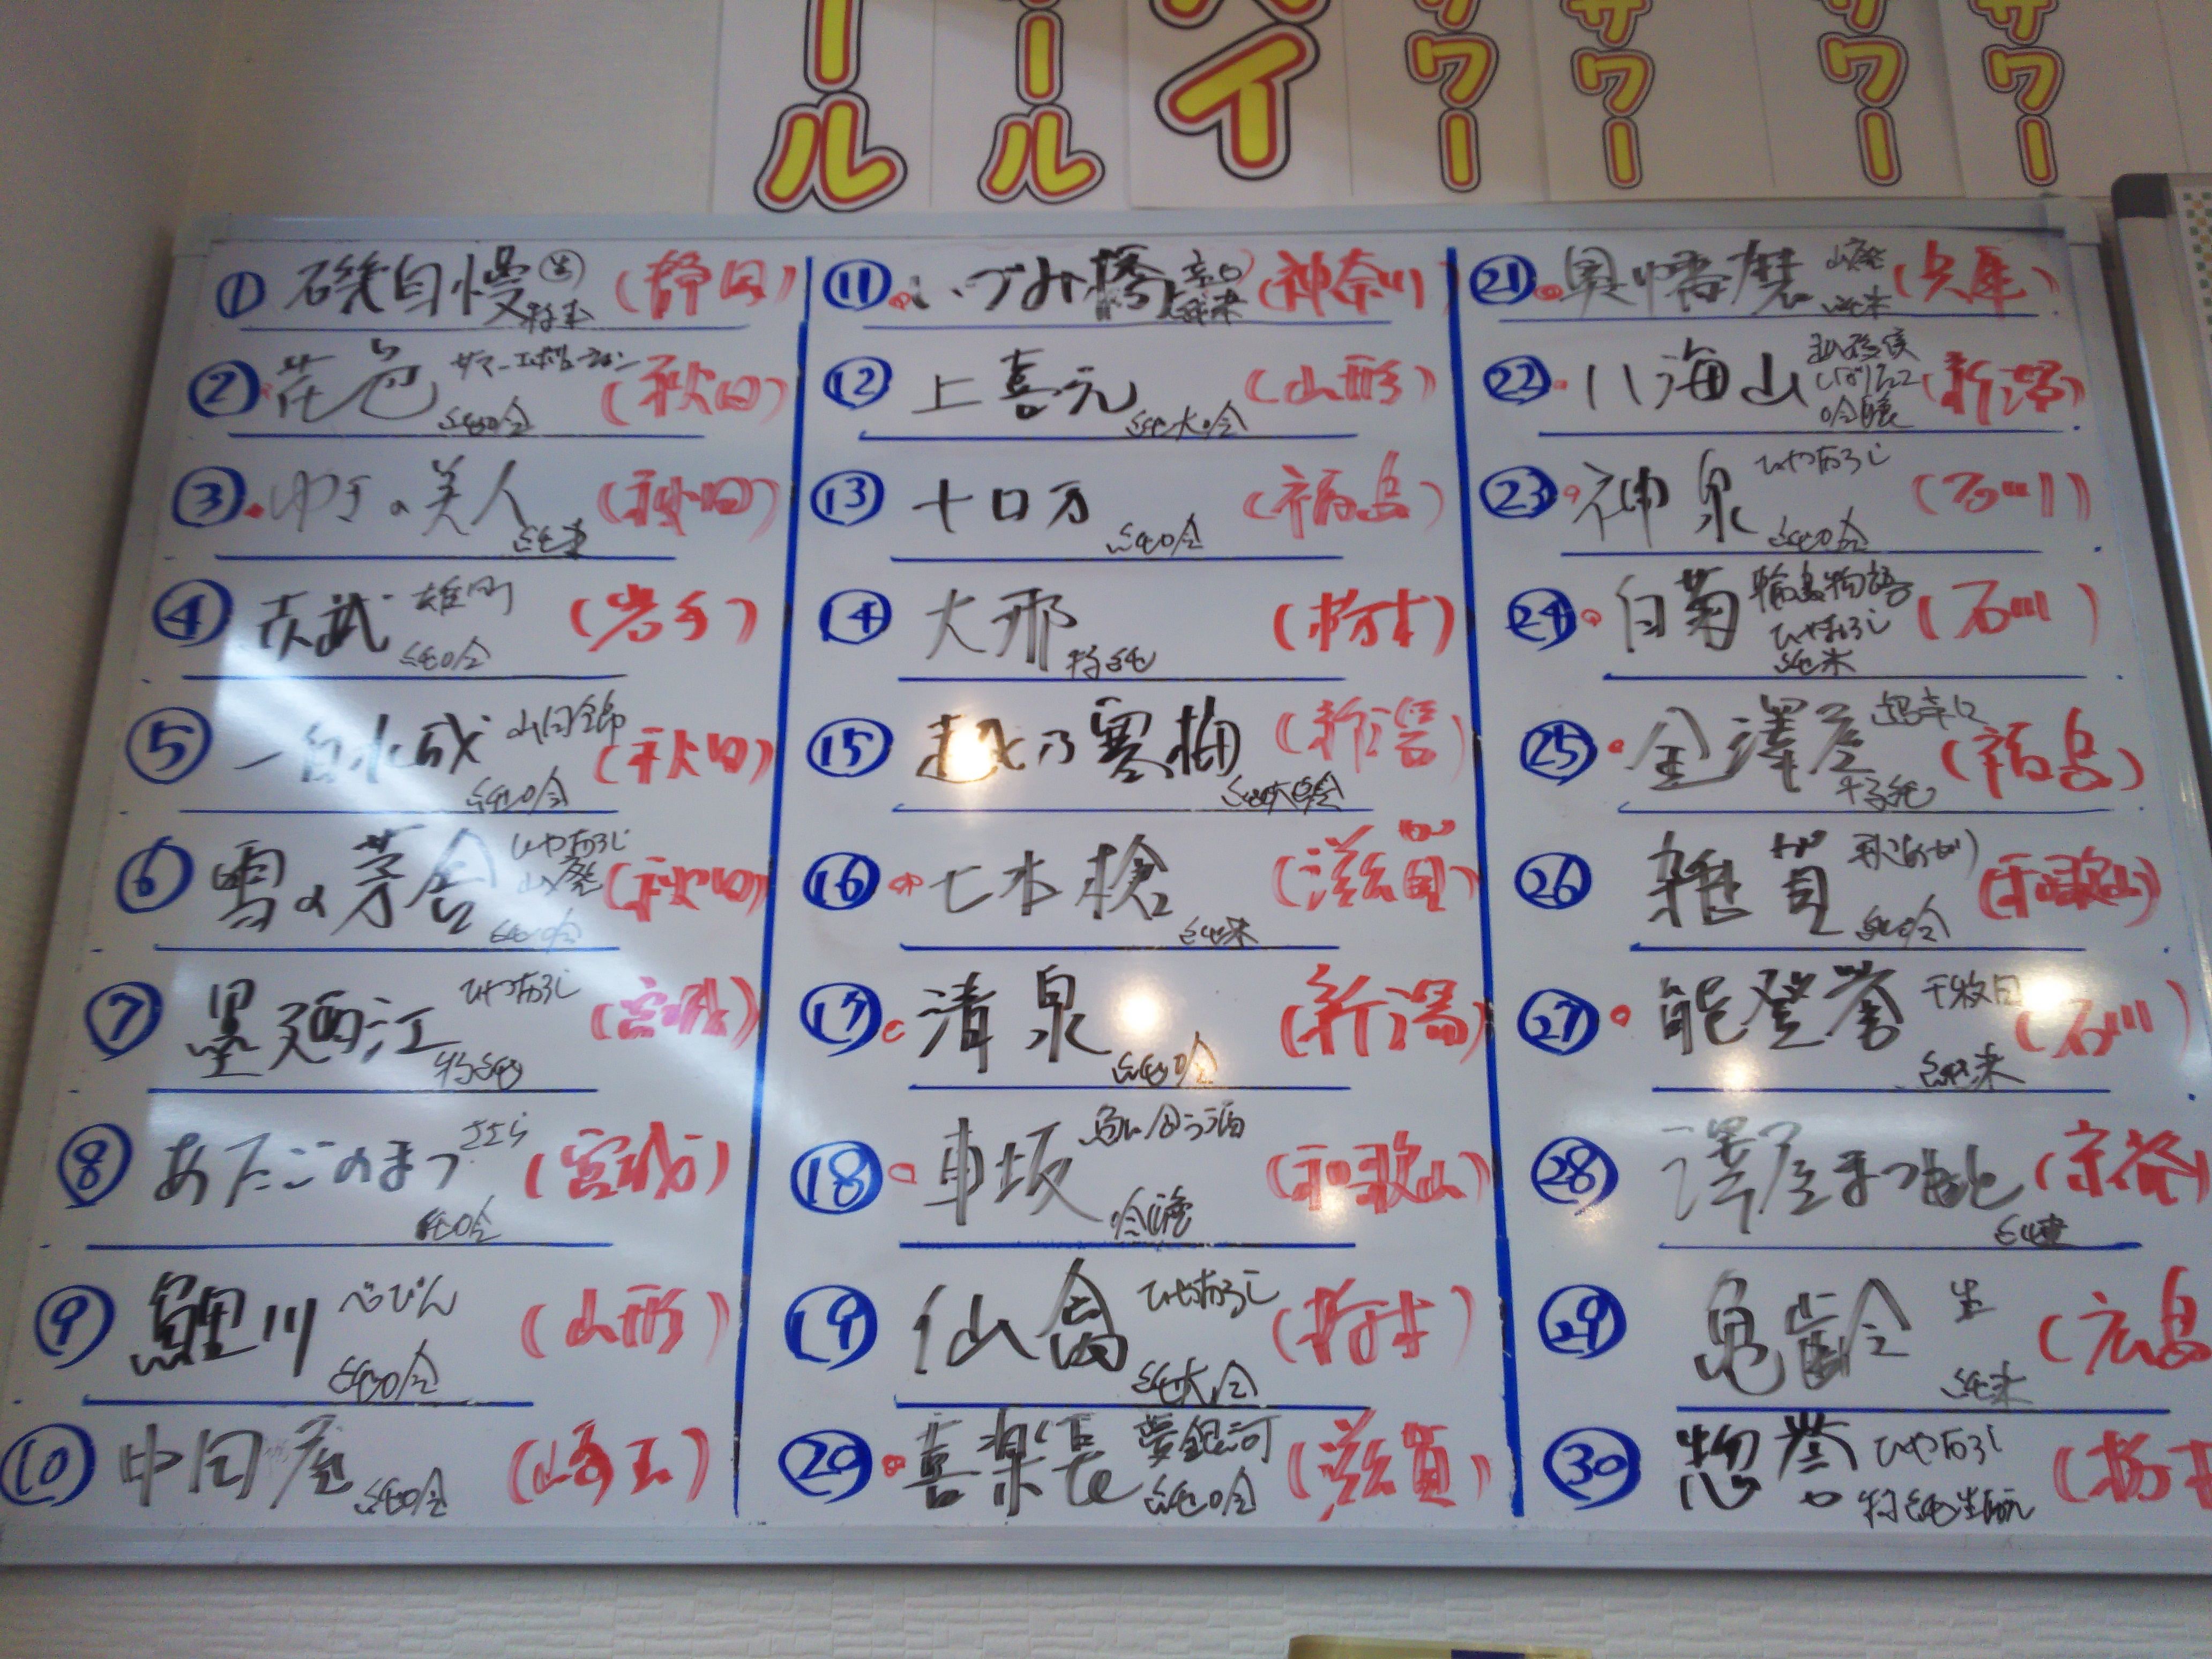 ール
ール
イ
サワー
サワー
サワー
サワー
① 磯自慢 生 特本 (静岡)
② 花邑 サマー 純吟 (秋田)
③ ゆきの美人 純米 (秋田)
④ 赤武 雄町 純吟 (岩手)
⑤ 一白水成 山田錦 純吟 (秋田)
⑥ 雪の茅舎 ひやおろし 山廃 純吟 (秋田)
⑦ 墨廼江 ひやおろし 特純 (宮城)
⑧ あたごのまつ ささら 純吟 (宮城)
⑨ 鯉川 べっぴん 純吟 (山形)
⑩ 中田屋 純吟 (埼玉)
⑪ いづみ橋 辛口 純米 (神奈川)
⑫ 上喜元 純大吟 (山形)
⑬ 十口万 純吟 (福島)
⑭ 大那 特純 (栃木)
⑮ 越乃寒梅 純大吟 (新潟)
⑯ 七本槍 純米 (滋賀)
⑰ 清泉 純吟 (新潟)
⑱ 車坂 魚に合う酒 吟醸 (和歌山)
⑲ 仙禽 ひやおろし 純大吟 (栃木)
⑳ 喜楽長 夢銀河 純吟 (滋賀)
㉑ 奥播磨 山廃 純米 (兵庫)
㉒ 八海山 しぼりたて 吟醸 (新潟)
㉓ 神泉 ひやおろし 純吟 (石川)
㉔ 白菊 輪島物語 ひやおろし 純米 (石川)
㉕ 金澤屋 超辛口 特純 (福島)
㉖ 雑賀 秋あがり 純吟 (和歌山)
㉗ 能登誉 千枚田 純米 (石川)
㉘ 澤屋まつもと 純米 (京都)
㉙ 亀齢 生 純米 (広島
㉚ 惣誉 ひやおろし 特純生酛 (栃木